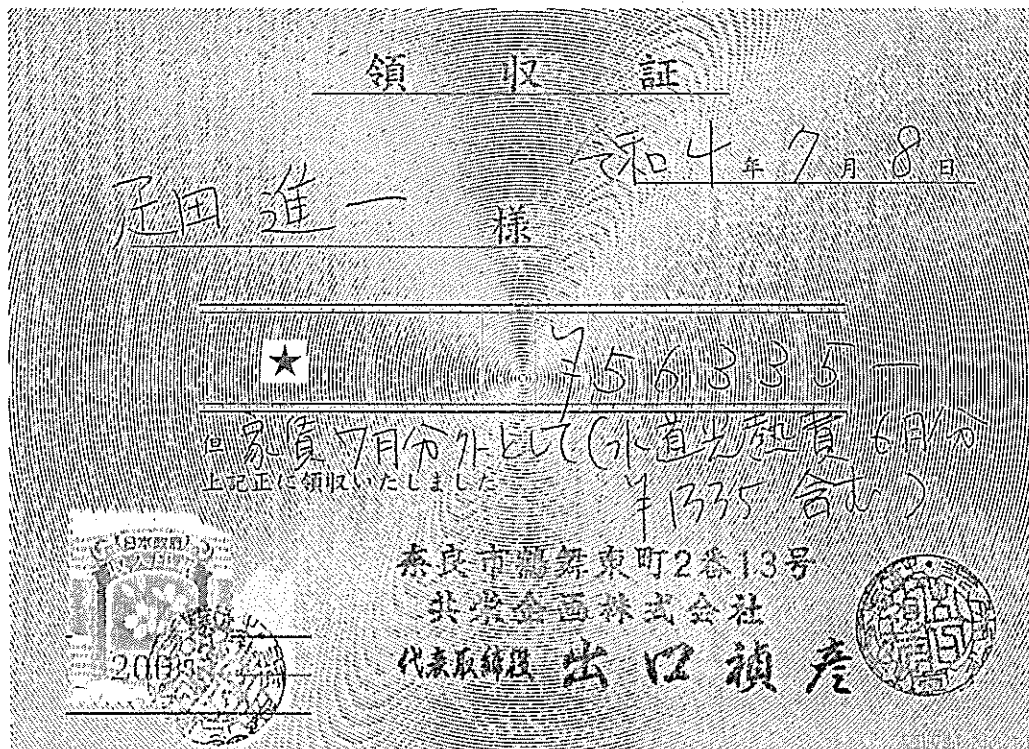 領収証
令和4年7月8日
疋田進一 様
★ ¥56335－
但 家賃7月分外として(水道光熱費6月分
上記正に領収いたしました ¥1335含む)
日本政府
200
奈良市鶴舞東町2番13号
共栄企画株式会社
代表取締役 出口禎彦